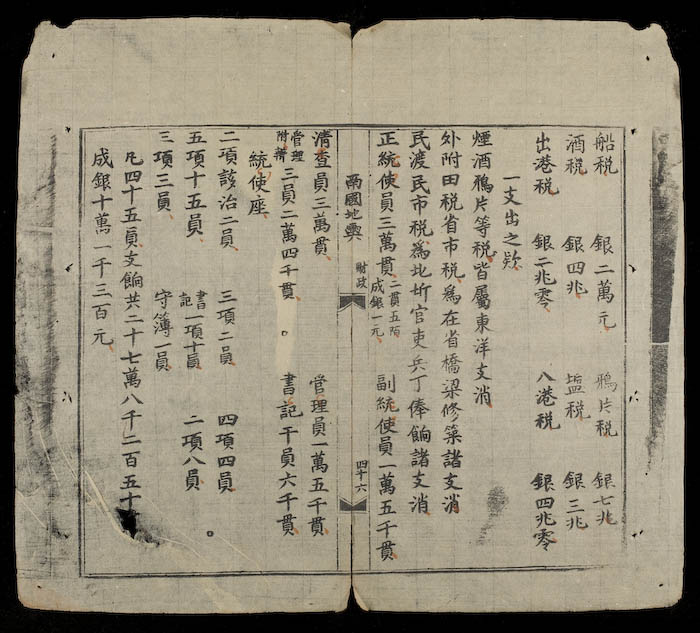 船税 銀二萬元 鴉片税 銀七兆
酒税 銀四兆 塩税 銀三兆
出港税 銀二兆零 八港税 銀四兆零
一支出之欵
煙酒鴉片等税皆屬東洋支消
外附田税省市税爲在省橋梁修築諸支消
民渡民市税爲北圻官吏兵丁俸餉諸支消
正統使員三萬貫 二貫五陌成銀一元 副統使員一萬五千貫
兩國地輿 財政 四十六
清查員三萬貫 管理員一萬五千貫
管理附辦 三員二萬四千貫 書記千員六千貫
統使座
二項該治二員 三項二員 四項四員
五項十五員 書記一項十員 二項八員
三項三員 守簿一員
凡四十五員支餉共二十七萬八千二百五十
成銀十萬一千三百元